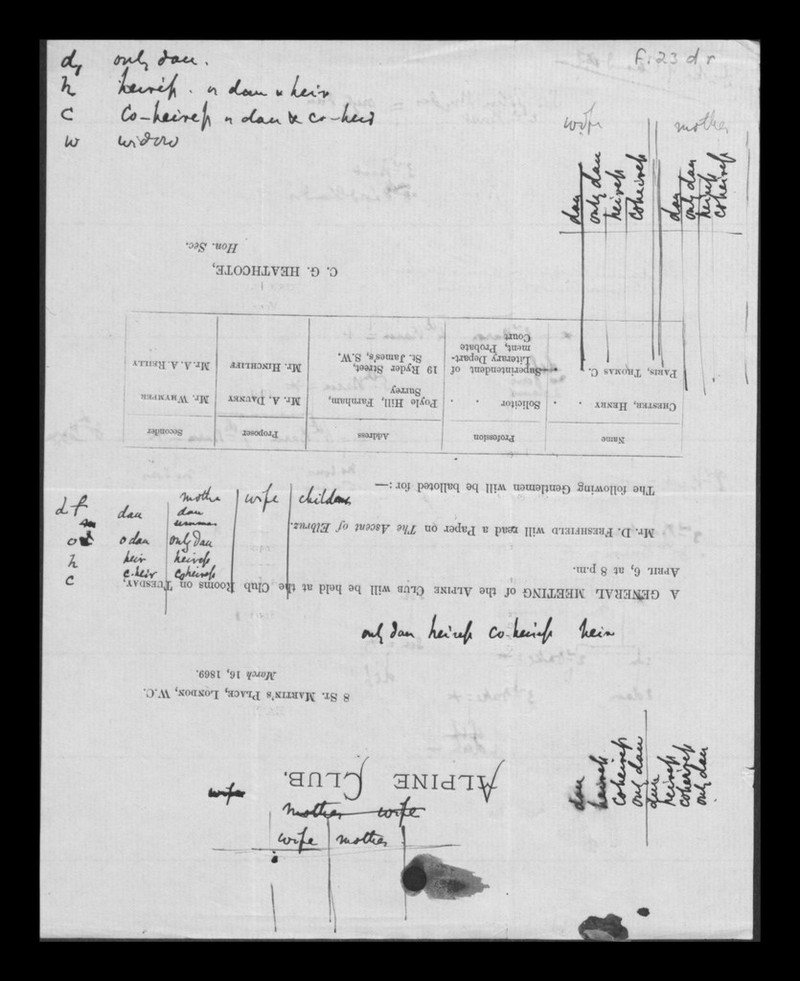 F.23 d r
d only dau.
h heiress. or dau & heir
c Co-heiress or dau & co-heir
w widow
wife mother
dau
only dau
heiress
coheiress
dau
only dau
heiress
coheiress
mother wife children
dau dau
o dau only dau
h heir heiress
c c-heir coheiress
only dau heiress co-heiress heir
dau
heiress
coheiress
only dau
dau
heiress
coheiress
only dau
wife
mother wife
wife mother
ALPINE CLUB.
8 ST. MARTIN'S PLACE, LONDON, W.C.
March 16, 1869.
A GENERAL MEETING of the ALPINE CLUB will be held at the Club Rooms on TUESDAY,
APRIL 6, at 8 p.m.
Mr. D. FRESHFIELD will read a Paper on The Ascent of Elbruz.
The following Gentlemen will be balloted for:—
Name Profession Address Proposer Seconder
CHESTER, HENRY . . Solicitor . . Poyle Hill, Farnham, Surrey Mr. A. DAUNEY Mr. WHYMPER
PARIS, THOMAS C. . Superintendent of Literary Depart-ment, Probate Court 19 Ryder Street, St. James's, S.W. Mr. HINCHLIFF Mr. A. A. REILLY
C. G. HEATHCOTE,
Hon. Sec.